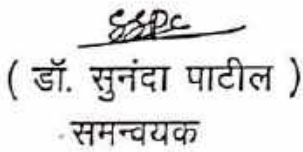 ( डॉ. सुनंदा पाटील )
समन्वयक